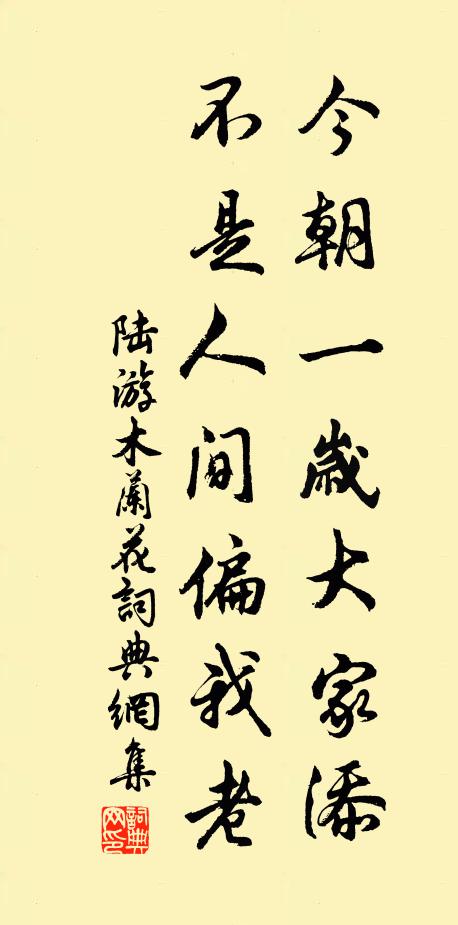 今朝一歲大家添
不是人间偏我老
陆游木蘭花詞典網集
詞典网印